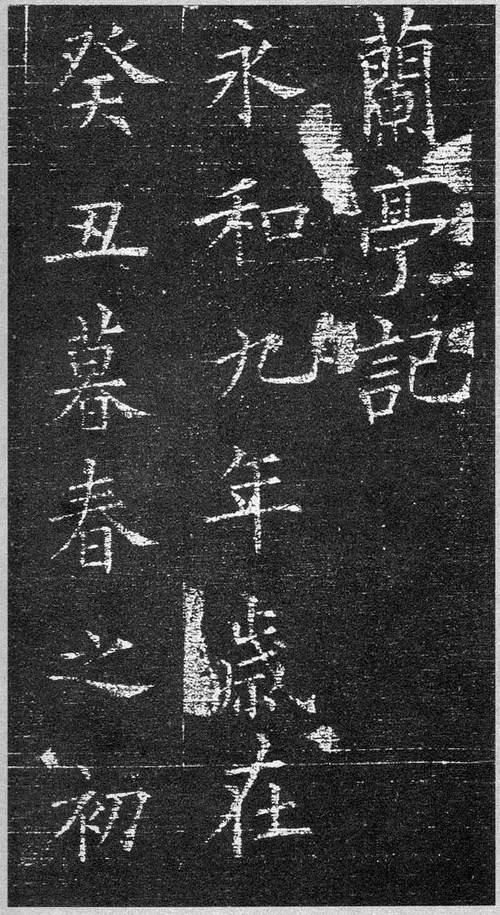 蘭亭記
永和九年歳在
癸丑暮春之初